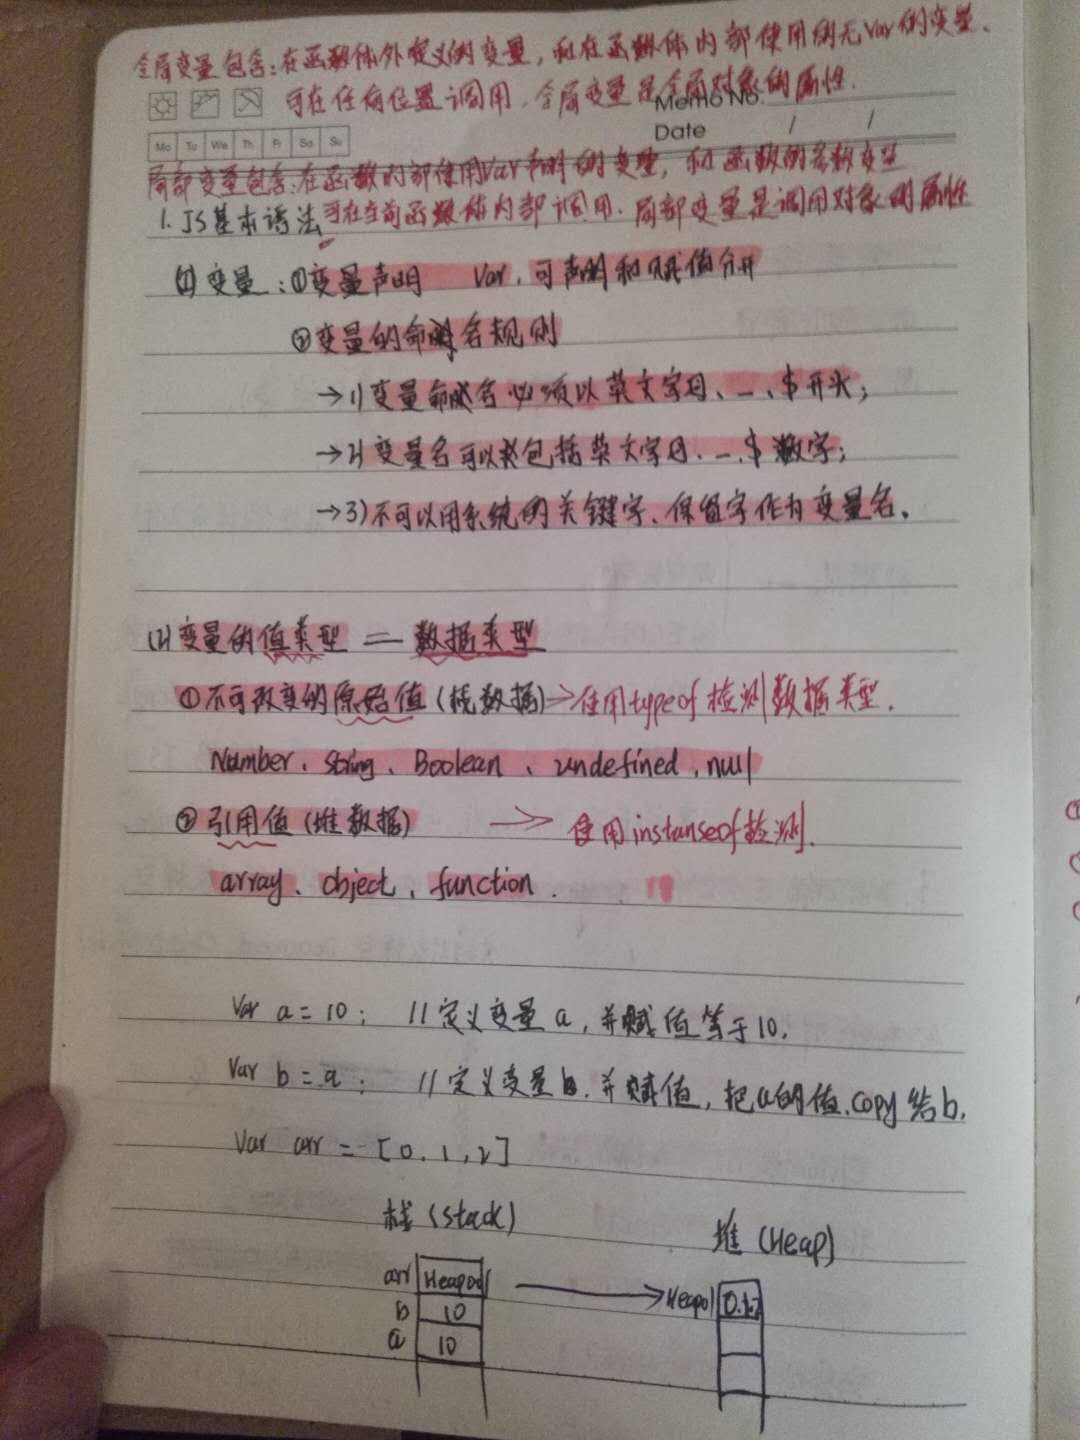 全局变量包含:在函数体外定义的变量,和在函数体内部使用的无Var的变量.
可在任何位置调用.全局变量是全局对象的属性.
Memo No.
Mo Tu We Th Fr Sa Su
Date / /
局部变量包含:在函数内部使用Var声明的变量,和函数的参数变量
可在当前函数体内部调用.局部变量是调用对象的属性
1. JS基本语法
(1) 变量:①变量声明 Var,可声明和赋值分开
②变量的命名规则
→1)变量命名必须以英文字母、_、$开头;
→2)变量名可以包括英文字母、_、$ 数字;
→3)不可以用系统的关键字、保留字作为变量名.
(2)变量的值类型 = 数据类型
①不可改变的原始值(栈数据)→使用typeof检测数据类型.
Number、String、Boolean、undefined,null
②引用值(堆数据) → 使用instanseof检测.
array、object,function.
Var a=10; //定义变量a,并赋值等于10.
Var b=a; //定义变量b.并赋值,把a的值,copy给b.
Var arr = [0,1,2]
栈(stack)
堆(Heap)
arr Heap01 → Heap01 0.1.2
b 10
a 10